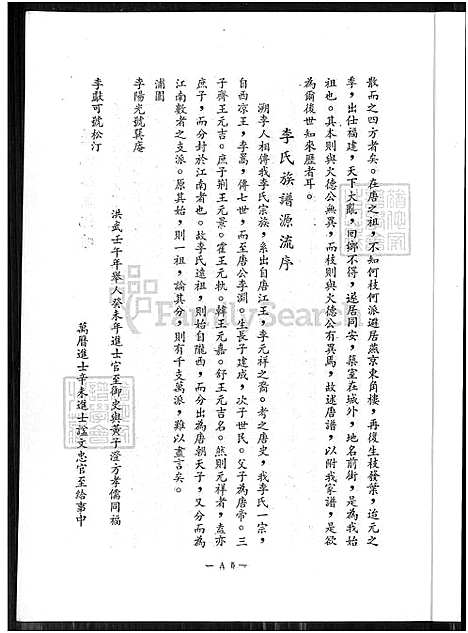 散而之四方者矣。在唐之祖，不知何枝何派避居燕京東角樓，再復生枝發葉，迨元之
季，出仕福建，天下大亂，回鄉不得，遂居同安，築室在城外，地名前街，是為我始
祖也。其本則與火德公無異，而枝則與火德公有異焉，故述唐譜，以附我家譜，是欲
為爾後世知來歷者耳。
李氏族譜源流序
溯李人相傳我李氏宗族，系出自唐江王，李元祥之裔。考之唐史，我李氏一宗，
自西涼王，李暠，傳七世，而至唐公李淵。生長子建成，次子世民。父子為唐帝。三
子齊王元吉。庶子荆王元景。霍王元軌。韓王元嘉。舒王元吉名。然則元祥者，亦
庶子，而分封於江南者也。故李氏遠祖，則始自隴西，而分出為唐朝天子，又分而為
江南數者之支派。原其始，則一祖，論其分，則有千支萬派，難以盡言矣。
浦園
李陽光號巽庵
洪武壬午年舉人癸未年進士官至御史與黃子澄方孝儒同福
李獻可號松汀
萬曆進士辛未進士諡文忠官至給事中
—A5—
FamilySearch